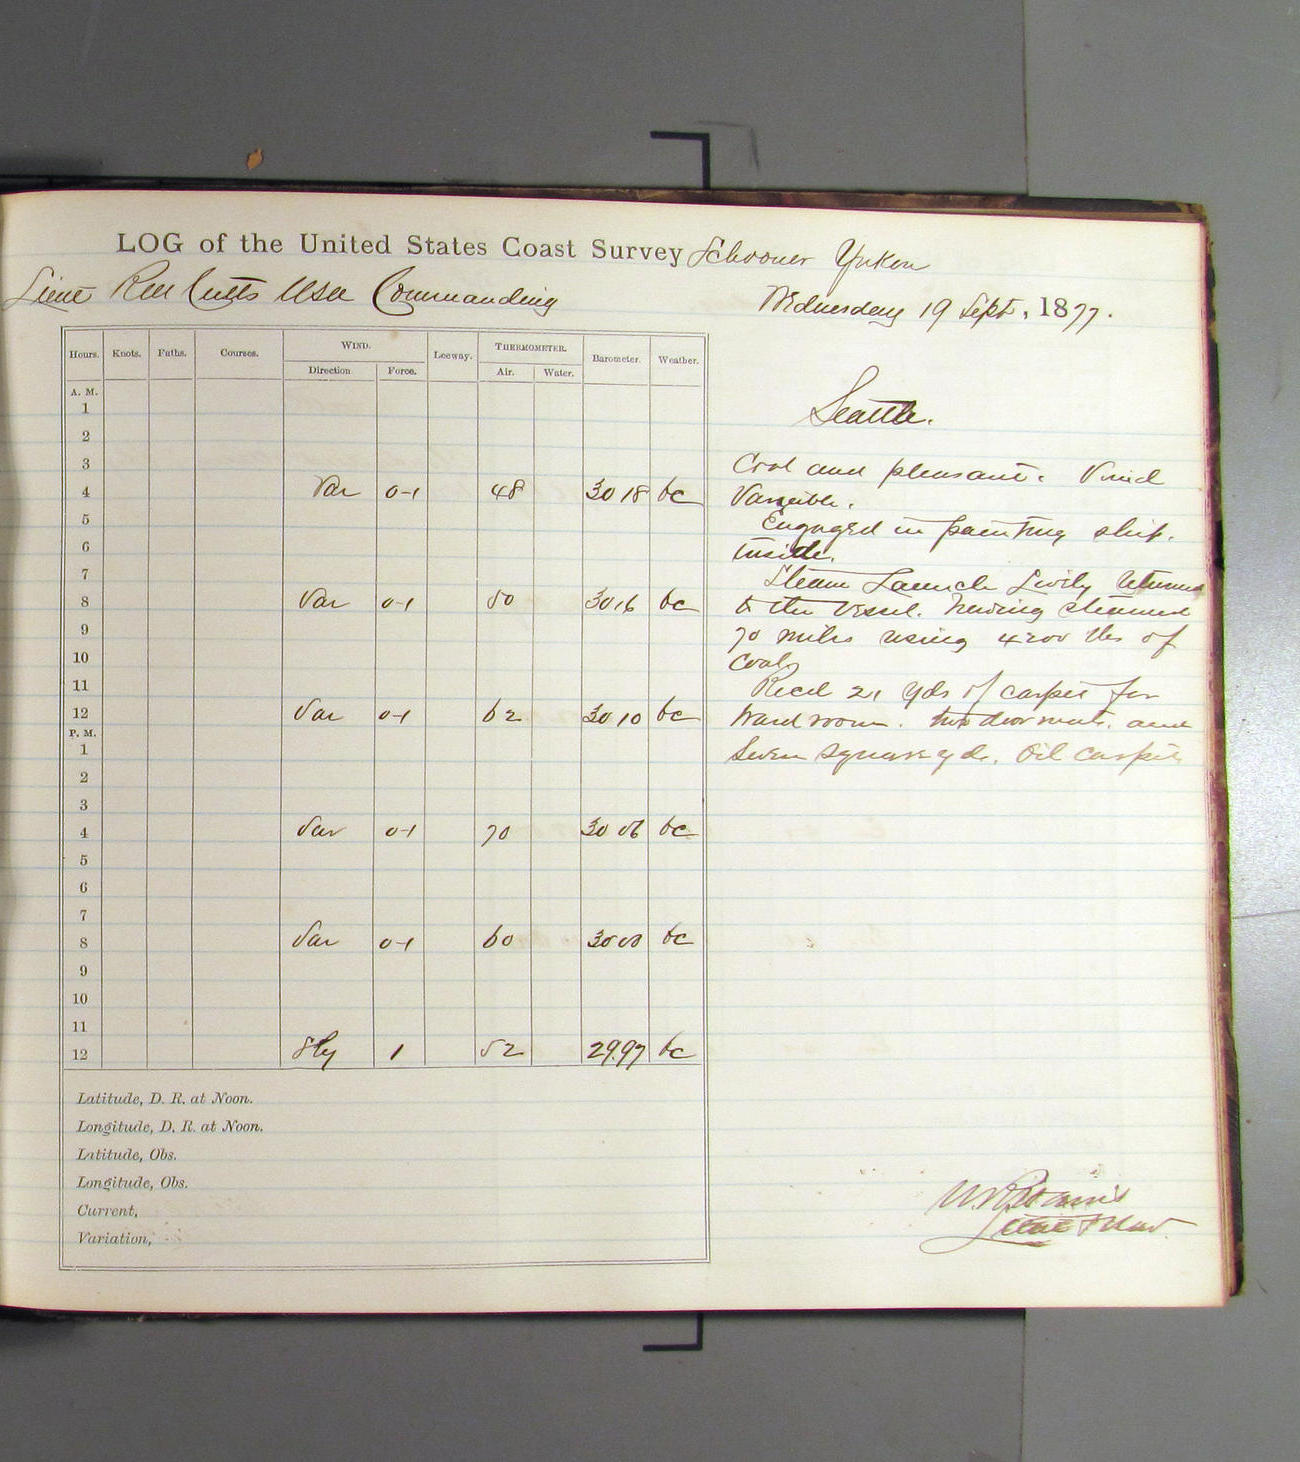 LOG of the United States Coast Survey Schooner Yukon
Lieut Cutts USN Commanding
Wednesday 19 Sept, 1877.
Hours. Knots. Faths. Courses. WIND. Leeway. THERMOMETER. Barometer. Weather.
Direction Force. Air. Water.
A. M.
1
2
3
4 Var 0-1 48 30 18 bc
5
6
7
8 Var 0-1 50 30 16 bc
9
10
11
12 Var 0-1 62 30 10 bc
P. M.
1
2
3
4 Var 0-1 70 30 06 bc
5
6
7
8 Var 0-1 60 30 00 bc
9
10
11
12 Sly 1 52 29.97 bc
Latitude, D. R. at Noon.
Longitude, D. R. at Noon.
Latitude, Obs.
Longitude, Obs.
Current,
Variation,
Seattle.
Cool and pleasant. Wind
Variable.
Engaged in painting ship.
inside.
Steam Launch Lively returned
to the vessel. having steamed
70 miles using 4200 lbs of
coal
Recd 21 yds of carpet for
Ward room. two door mats. and
Seven square yds. Oil carpet